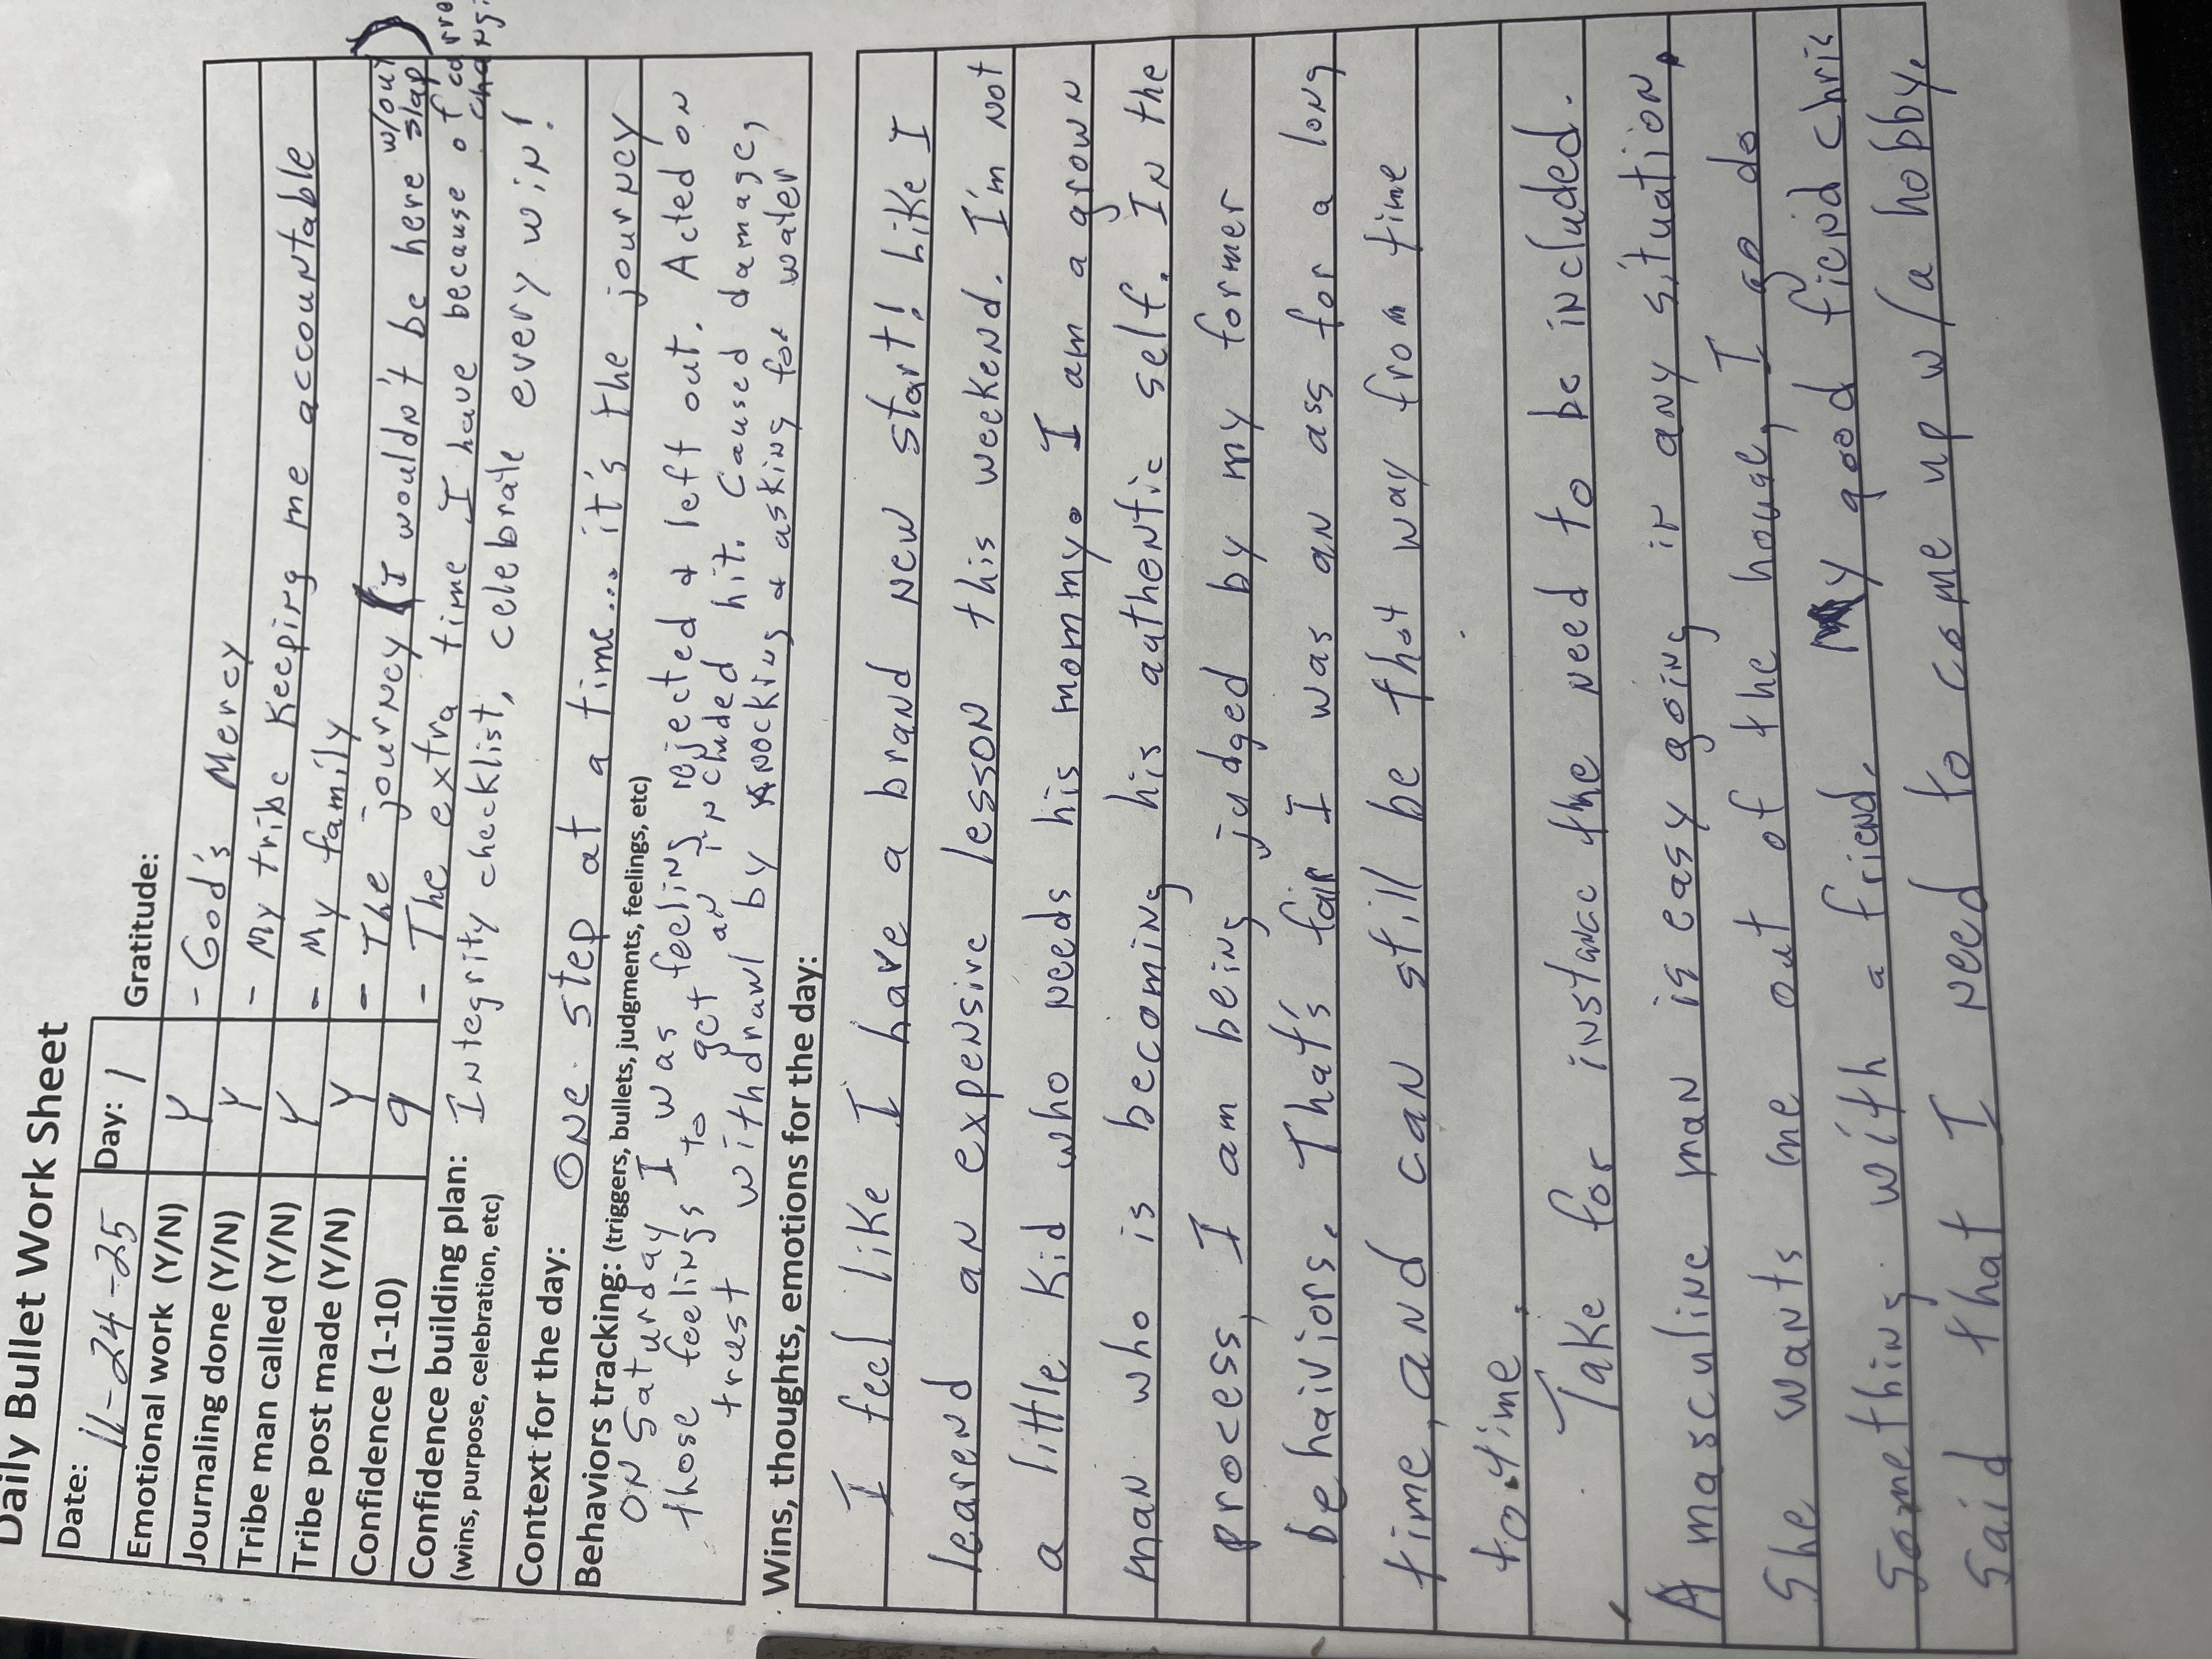 Daily Bullet Work Sheet
Date: 11-24-25 Day: 1 Gratitude:
Emotional work (Y/N) Y - God's Mercy
Journaling done (Y/N) Y - My tribe keeping me accountable
Tribe man called (Y/N) Y - My family
Tribe post made (Y/N) Y - The journey (I wouldn't be here w/out slap)
Confidence (1-10) 9 - The extra time I have because of
Confidence building plan: Integrity checklist, celebrate every win!
(wins, purpose, celebration, etc)
Context for the day: One step at a time... it's the journey
Behaviors tracking: (triggers, bullets, judgments, feelings, etc)
On Saturday I was feeling rejected & left out. Acted on
those feelings to get an included hit. Caused damage,
trust withdrawl by knocking & asking for water
Wins, thoughts, emotions for the day:
I feel like I have a brand new start! Like I
learend an expensive lesson this weekend. I'm not
a little kid who needs his mommy. I am a grown
man who is becoming his authentic self. In the
process, I am being judged by my former
behaiviors. That's fair I was an ass for a long
time, and can still be that way from time
to time.
Take for instance the need to be included.
A masculine man is easy going in any situation.
She wants me out of the house, I go do
something with a friend. My good ficnd chris
said that I need to come up w/a hobby.